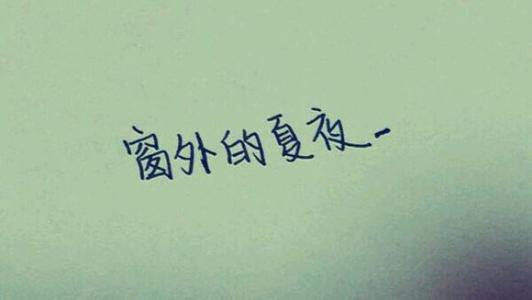 窗外的夏夜-